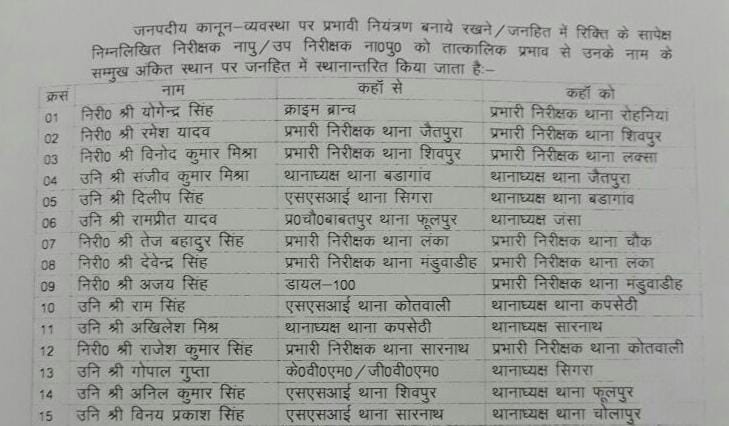 जनपदीय कानून-व्यवस्था पर प्रभावी नियंत्रण बनाये रखने/जनहित में रिक्ति के सापेक्ष
निम्नलिखित निरीक्षक नापु/उप निरीक्षक ना0पु0 को तात्कालिक प्रभाव से उनके नाम के
सम्मुख अंकित स्थान पर जनहित में स्थानान्तरित किया जाता है:-
क्रसं नाम कहाँ से कहाँ को
01 निरी0 श्री योगेन्द्र सिंह क्राइम ब्रान्च प्रभारी निरीक्षक थाना रोहनिया
02 निरी0 श्री रमेश यादव प्रभारी निरीक्षक थाना जैतपुरा प्रभारी निरीक्षक थाना शिवपुर
03 निरी0 श्री विनोद कुमार मिश्रा प्रभारी निरीक्षक थाना शिवपुर प्रभारी निरीक्षक थाना लक्सा
04 उनि श्री संजीव कुमार मिश्रा थानाध्यक्ष थाना बडागांव थानाध्यक्ष थाना जैतपुरा
05 उनि श्री दिलीप सिंह एसएसआई थाना सिगरा थानाध्यक्ष थाना बडागांव
06 उनि श्री रामप्रीत यादव प्र0चौ0बाबतपुर थाना फूलपुर थानाध्यक्ष थाना जंसा
07 निरी0 श्री तेज बहादुर सिंह प्रभारी निरीक्षक थाना लंका प्रभारी निरीक्षक थाना चौक
08 निरी0 श्री देवेन्द्र सिंह प्रभारी निरीक्षक थाना मंडुवाडीह प्रभारी निरीक्षक थाना लंका
09 निरी0 श्री अजय सिंह डायल-100 प्रभारी निरीक्षक थाना मंडुवाडीह
10 उनि श्री राम सिंह एसएसआई थाना कोतवाली थानाध्यक्ष थाना कपसेठी
11 उनि श्री अखिलेश मिश्र थानाध्यक्ष थाना कपसेठी थानाध्यक्ष थाना सारनाथ
12 निरी0 श्री राजेश कुमार सिंह प्रभारी निरीक्षक थाना सारनाथ प्रभारी निरीक्षक थाना कोतवाली
13 उनि श्री गोपाल गुप्ता के0वी0एम0/जी0वी0एम0 थानाध्यक्ष सिगरा
14 उनि श्री अनिल कुमार सिंह एसएसआई थाना शिवपुर थानाध्यक्ष थाना फूलपुर
15 उनि श्री विनय प्रकाश सिंह एसएसआई थाना सारनाथ थानाध्यक्ष थाना चोलापुर